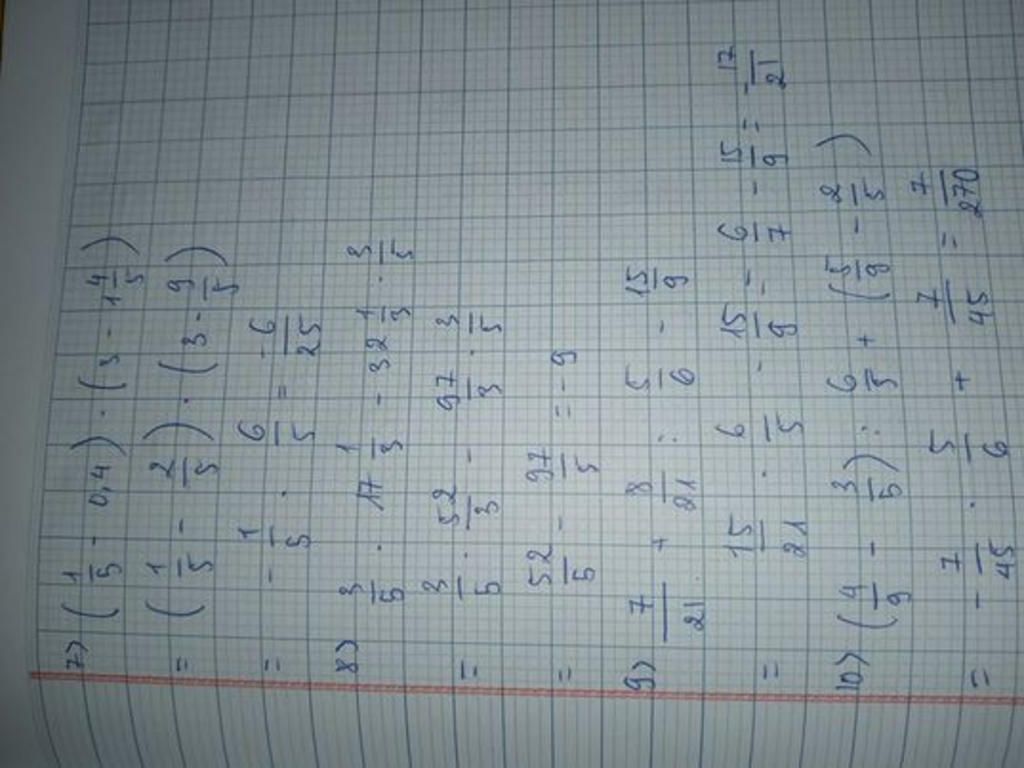 7) (1/5 - 0,4) · (3 - 1 4/5)
= (1/5 - 2/5) · (3 - 9/5)
= - 1/5 · 6/5 = - 6/25
8) 3/5 · 17 1/3 - 32 1/3 · 3/5
= 3/5 · 52/3 - 97/3 · 3/5
= 52/5 - 97/5 = - 9
9) 7/21 + 8/21 : 5/6 - 15/9
= 15/21 · 6/5 - 15/9 = 6/7 - 15/9 = - 17/21
10) (4/9 - 3/5) : 6/5 + (5/9 - 2/5)
= - 7/45 · 5/6 + 7/45 = 7/270